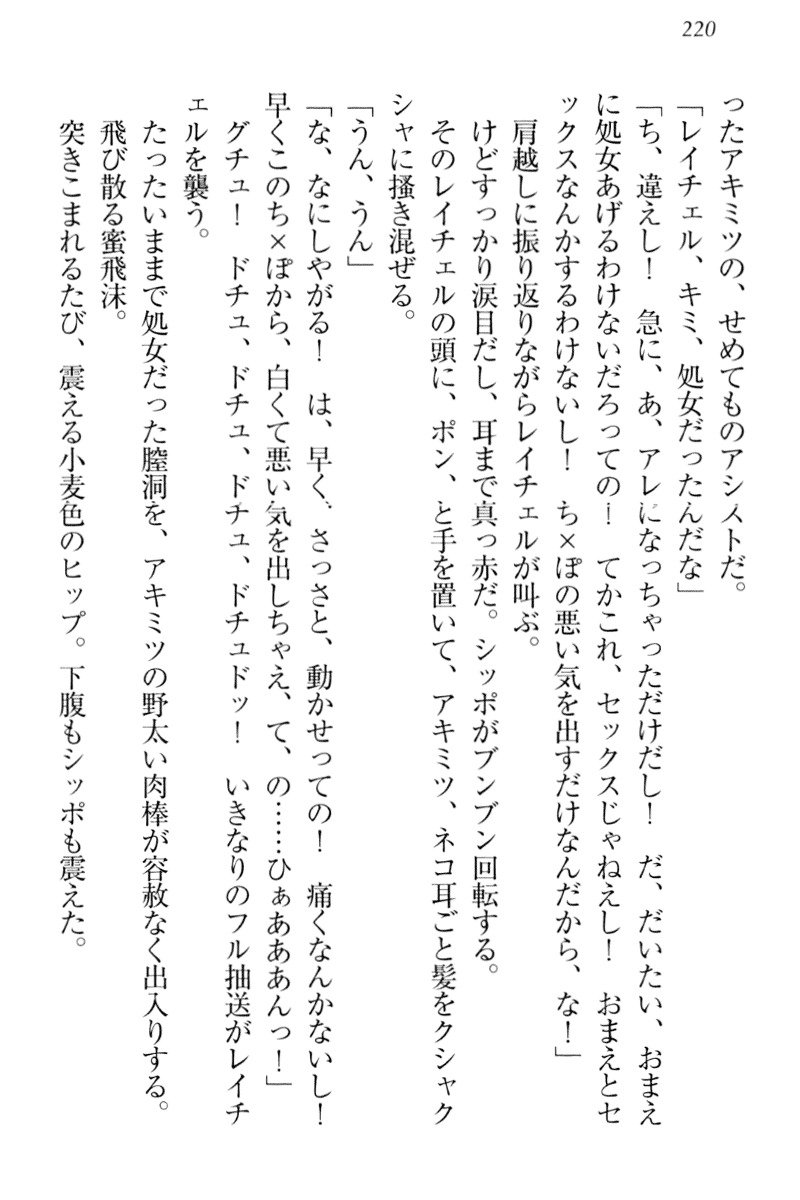 220
ったアキミツの、せめてものアシストだ。
「レイチェル、キミ、処女だったんだな」
「ち、違えし！　急に、あ、アレになっちゃっただけだし！　だ、だいたい、おまえ
に処女あげるわけないだろっての！　てかこれ、セックスじゃねえし！　おまえとセ
ックスなんかするわけないし！　ち×ぽの悪い気を出すだけなんだから、な！」
肩越しに振り返りながらレイチェルが叫ぶ。
けどすっかり涙目だし、耳まで真っ赤だ。シッポがブンブン回転する。
そのレイチェルの頭に、ポン、と手を置いて、アキミツ、ネコ耳ごと髪をクシャク
シャに掻き混ぜる。
「うん、うん」
「な、なにしやがる！　は、早く、さっさと、動かせっての！　痛くなんかないし！
早くこのち×ぽから、白くて悪い気を出しちゃえ、て、の……ひぁあああんっ！」
グチュ！　ドチュ、ドチュ、ドチュドッ！　いきなりのフル抽送がレイチ
ェルを襲う。
たったいままで処女だった膣洞を、アキミツの野太い肉棒が容赦なく出入りする。
飛び散る蜜飛沫。
突きこまれるたび、震える小麦色のヒップ。下腹もシッポも震えた。